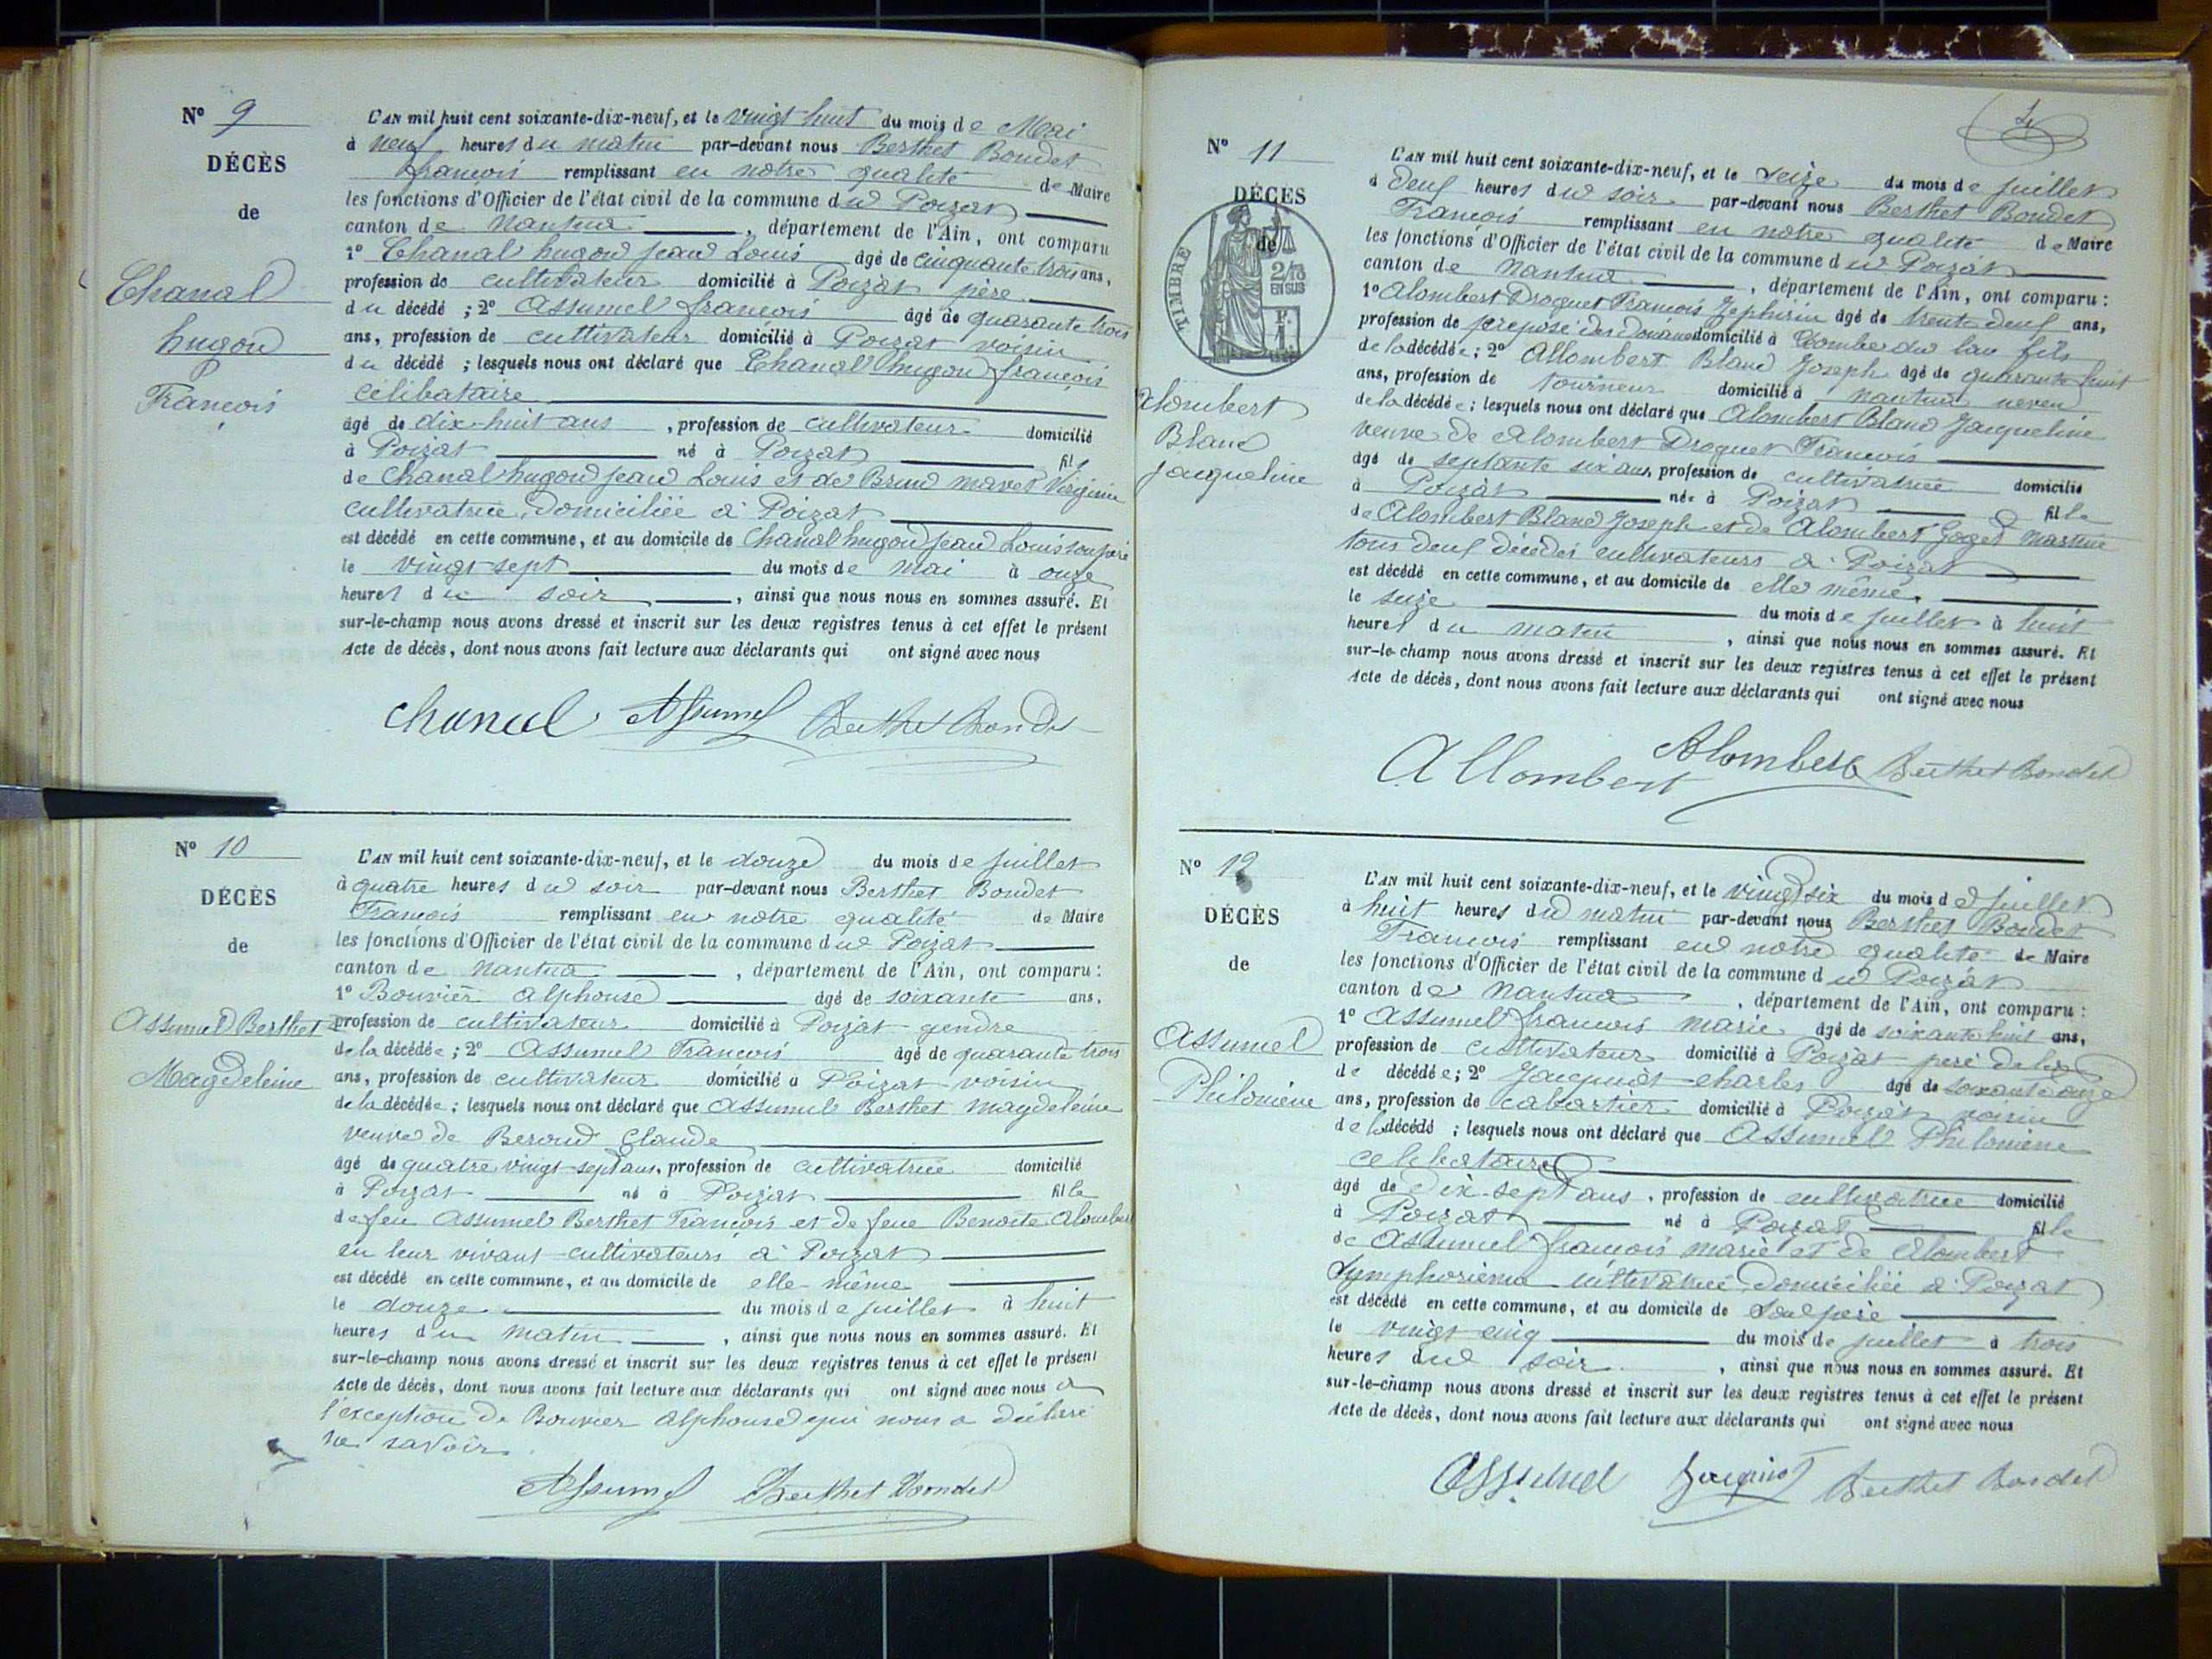 N° 9
DÉCÈS
de
Chanal
hugon
François
L'AN mil huit cent soixante-dix-neuf, et le vingt huit du mois de Mai
à neuf heures du matin par-devant nous Berthet Bondet
françois remplissant en notre qualité de Maire
les fonctions d'Officier de l'état civil de la commune du Poizat
canton de Nantua, département de l'Ain, ont comparu
1° Chanal hugon jean Louis âgé de cinquante trois ans,
profession de cultivateur domicilié à Poizat père
du décédé ; 2° Assumel françois âgé de quarante trois
ans, profession de cultivateur domicilié à Poizat voisin
du décédé ; lesquels nous ont déclaré que Chanal hugon françois
célibataire
âgé de dix-huit ans, profession de cultivateur domicilié
à Poizat né à Poizat fils
de Chanal hugon jean Louis et de Brun mavet Virginie
cultivatrice domiciliée à Poizat
est décédé en cette commune, et au domicile de Chanal hugon jean Louis son père
le vingt sept du mois de mai à onze
heures du soir, ainsi que nous nous en sommes assuré. Et
sur-le-champ nous avons dressé et inscrit sur les deux registres tenus à cet effet le présent
Acte de décès, dont nous avons fait lecture aux déclarants qui ont signé avec nous
Chanal Assumel Berthet Bondet
N° 10
DÉCÈS
de
Assumel Berthet
Magdeleine
L'AN mil huit cent soixante-dix-neuf, et le douze du mois de juillet
à quatre heures du soir par-devant nous Berthet Bondet
François remplissant en notre qualité de Maire
les fonctions d'Officier de l'état civil de la commune du Poizat
canton de Nantua, département de l'Ain, ont comparu :
1° Bouvier Alphonse âgé de soixante ans,
profession de cultivateur domicilié à Poizat gendre
de la décédée ; 2° Assumel François âgé de quarante trois
ans, profession de cultivateur domicilié à Poizat voisin
de la décédée ; lesquels nous ont déclaré que Assumel Berthet Magdeleine
veuve de Beroud Claude
âgé de quatre vingt-sept ans, profession de cultivatrice domicilié
à Poizat né à Poizat fille
de feu Assumel Berthet François et de feue Benoite Alombert
en leur vivant cultivateurs à Poizat
est décédé en cette commune, et au domicile de elle-même
le douze du mois de juillet à huit
heures du matin, ainsi que nous nous en sommes assuré. Et
sur-le-champ nous avons dressé et inscrit sur les deux registres tenus à cet effet le présent
Acte de décès, dont nous avons fait lecture aux déclarants qui ont signé avec nous à
l'exception de Bouvier Alphonse qui nous a déclaré
ne savoir
Assumel Berthet Bondet
N° 11
DÉCÈS
de
TIMBRE
2/10
EN SUS
Alombert
Bland
jacqueline
L'AN mil huit cent soixante-dix-neuf, et le seize du mois de juillet
à deux heures du soir par-devant nous Berthet Bondet
François remplissant en notre qualité de Maire
les fonctions d'Officier de l'état civil de la commune du Poizat
canton de Nantua, département de l'Ain, ont comparu :
1° Alombert Droguet François Zephirin âgé de trente deux ans,
profession de préposé des douanes domicilié à Combe du lau fils
de la décédée ; 2° Allombert Bland Joseph âgé de quarante huit
ans, profession de tourneur domicilié à Nantua neveu
de la décédée ; lesquels nous ont déclaré que Alombert Bland Jacqueline
veuve de Alombert Droguet François
âgé de septante six ans, profession de cultivatrice domicilié
à Poizat née à Poizat fille
de Alombert Bland Joseph et de Alombert Goget Marine
tous deux décédés cultivateurs à Poizat
est décédé en cette commune, et au domicile de elle même
le seize du mois de juillet à huit
heures du matin, ainsi que nous nous en sommes assuré. Et
sur-le-champ nous avons dressé et inscrit sur les deux registres tenus à cet effet le présent
Acte de décès, dont nous avons fait lecture aux déclarants qui ont signé avec nous
Allombert Alombert Berthet Bondet
N° 12
DÉCÈS
de
Assumel
Philomène
L'AN mil huit cent soixante-dix-neuf, et le vingt six du mois de juillet
à huit heures du matin par-devant nous Berthet Bondet
François remplissant en notre qualité de Maire
les fonctions d'Officier de l'état civil de la commune du Poizat
canton de Nantua, département de l'Ain, ont comparu :
1° Assumel françois marie âgé de soixante huit ans,
profession de cultivateur domicilié à Poizat père de la
de décédée ; 2° Jacquiot charles âgé de soixante onze
ans, profession de cabartier domicilié à Poizat voisin
de la décédé ; lesquels nous ont déclaré que Assumel Philomène
celibataire
âgé de dix-sept ans, profession de cultivatrice domicilié
à Poizat né à Poizat fille
de Assumel françois marie et de Alombert
Symphorienne cultivatrice domiciliée à Poizat
est décédé en cette commune, et au domicile de son père
le vingt cinq du mois de juillet à trois
heures du soir, ainsi que nous nous en sommes assuré. Et
sur-le-champ nous avons dressé et inscrit sur les deux registres tenus à cet effet le présent
Acte de décès, dont nous avons fait lecture aux déclarants qui ont signé avec nous
Assumel Jacquiot Berthet Bondet